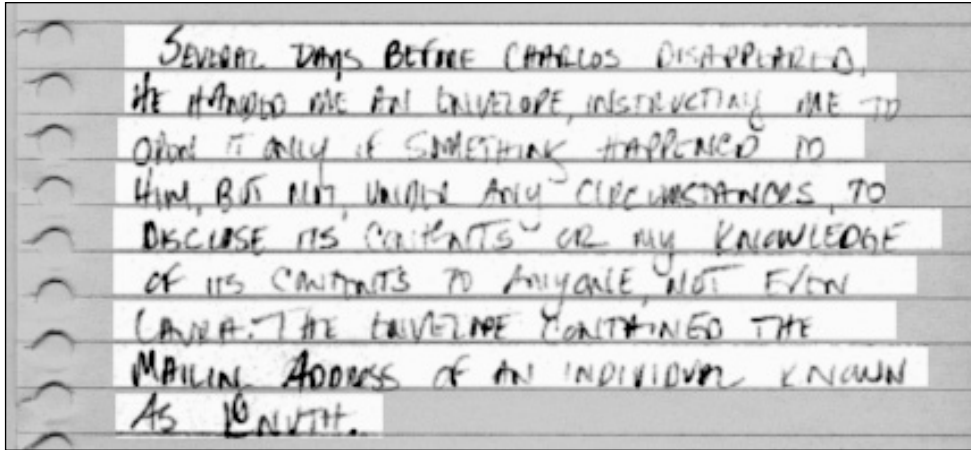 SEVERAL DAYS BEFORE CHARLOS DISAPPEARED,
HE HANDED ME AN ENVELOPE, INSTRUCTING ME TO
OPEN IT ONLY IF SOMETHING HAPPENED TO
HIM, BUT NOT, UNDER ANY CIRCUMSTANCES, TO
DISCLOSE ITS CONTENTS OR MY KNOWLEDGE
OF ITS CONTENTS TO ANYONE, NOT EVEN
LAURA. THE ENVELOPE CONTAINED THE
MAILING ADDRESS OF AN INDIVIDUAL KNOWN
AS